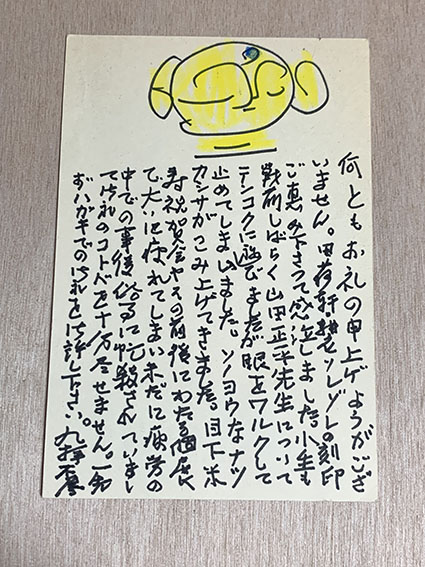 何ともお礼の申上ゲようがござ
いません。田荷軒 ソレゾレの刻印
ご恵み下さって感泣しました。小生も
戦前しばらく山田正平先生について
テンコクに遊びましたが眼をワルクして
止めてしまいました。ソノヨウなナツ
カシサがこみ上げてきました。目下米
寿祝賀会やその前後にわたる個展
で大いに疲れてしまい未だに疲労の
中での事後俗事に忙殺されていまし
て御礼のコトバを十分尽せません。
おハガキでの御礼を御許し下さい。九拝